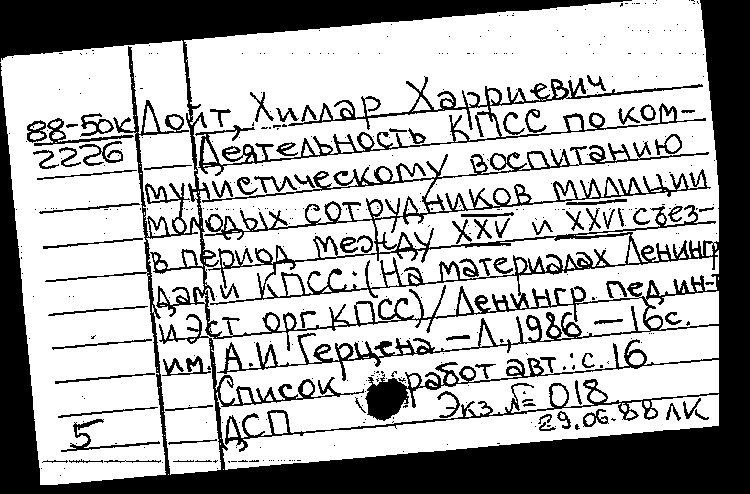 88-50к Лойт, Хиллар Харриевич.
2226 Деятельность КПСС по ком-
мунистическому воспитанию
молодых сотрудников милиции
в период между XXV и XXVI съез-
дами КПСС: (На материалах Ленингр.
и Эст. орг. КПСС) / Ленингр. пед. ин-т
им. А.И. Герцена. – Л., 1986. – 16с.
Список работ авт.: с. 16.
Экз. № 018.
5 ДСП. 29.06.88 ЛК